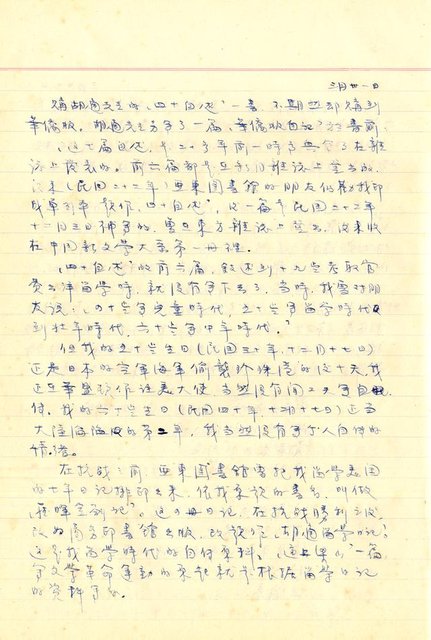 三月廿一日
讀胡適先生的「四十自述」一書,不期然卻讀到
華僑版。胡適先生另寫了一篇「華僑版自記」於書前:
「這七篇自述,是二十多年前一時高興寫了在雜
誌上發表的。前六篇都是在新月雜誌上登出的,
後來(民國二十二年)亞東圖書館的朋友們勸我印
成單行本,題作「四十自述」,後一篇是民國二十二年
十二月三日補寫的,曾在東方雜誌上登出,後來收
在中國新文學大系第一冊裡。
「四十自述」的前六篇,敘述到十九歲考取官
費出洋留學時,就沒有寫下去了。當時,我曾對朋
友說:「四十歲寫兒童時代,五十歲寫留學時代
到壯年時代,六十歲寫中年時代。」
但我的五十歲生日(民國三十年,十二月十七日)
正是日本的空軍海軍偷襲珍珠港的後十天,我
正在華盛頓作駐美大使,當然沒有閒工夫寫自
傳。我的六十歲生日(民國四十年,十二月十七日)正當
大陸淪陷的第三年,我當然沒有寫個人自傳的
情緒。
在抗戰之前,亞東圖書館曾把我留學美國
的七年日記排印出來,依我原題的書名,叫做
「藏暉室劄記」。這四冊日記,在抗戰勝利之後,
改歸商務印書館出版,改題作「胡適留學日記」。
這是我留學時代的自傳原料。「逼上梁山」一篇
寫文學革命運動的原起,就是根據留學日記
的資料寫的。